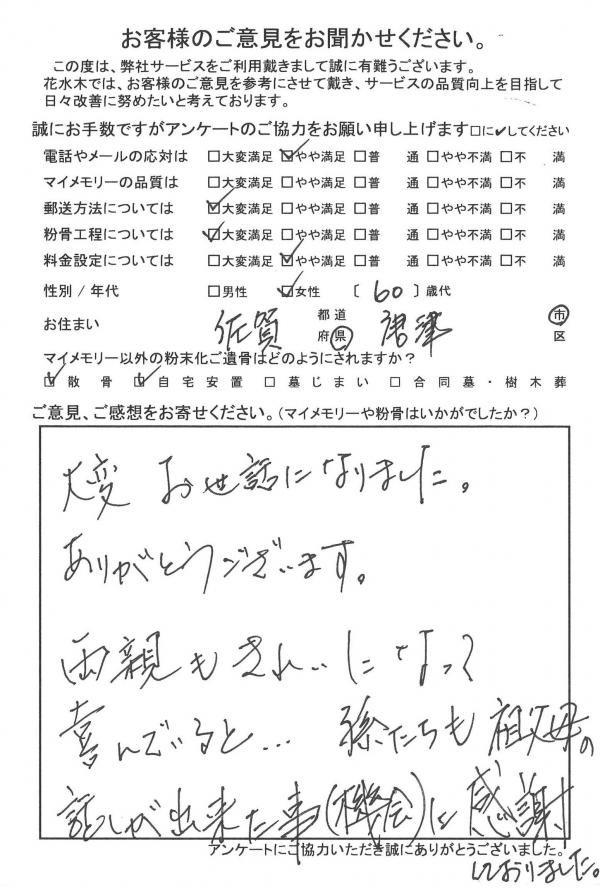 お客様のご意見をお聞かせください。
この度は、弊社サービスをご利用戴きまして誠に有難うございます。
花水木では、お客様のご意見を参考にさせて戴き、サービスの品質向上を目指して
日々改善に努めたいと考えております。
誠にお手数ですがアンケートのご協力をお願い申し上げます□に✓してください
電話やメールの応対は □大変満足 ☑やや満足 □普 通 □やや不満 □不 満
マイメモリーの品質は □大変満足 □やや満足 □普 通 □やや不満 □不 満
郵送方法については ☑大変満足 □やや満足 □普 通 □やや不満 □不 満
粉骨工程については ☑大変満足 □やや満足 □普 通 □やや不満 □不 満
料金設定については □大変満足 ☑やや満足 □普 通 □やや不満 □不 満
性別 / 年代 □男性 ☑女性 〔 60 〕歳代
お住まい 佐賀 都道府県 唐津 市区
マイメモリー以外の粉末化ご遺骨はどのようにされますか？
☑散骨 ☑自宅安置 □墓じまい □合同墓・樹木葬
ご意見、ご感想をお寄せください。(マイメモリーや粉骨はいかがでしたか？)
大変 お世話になりました。
ありがとうございます。
両親もきれいになって
喜んでいると… 孫たちも 祖父母の
話しが出来た事(機会)に感謝
しておりました。
アンケートにご協力いただき誠にありがとうございました。